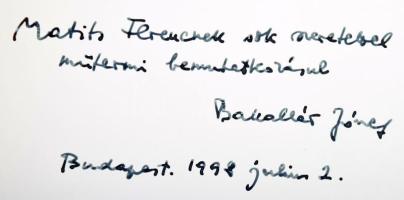 Matits Ferencnek sok szeretettel
műtermi bemutatkozásul
Bakallár József
Budapest. 1998 julius 2.